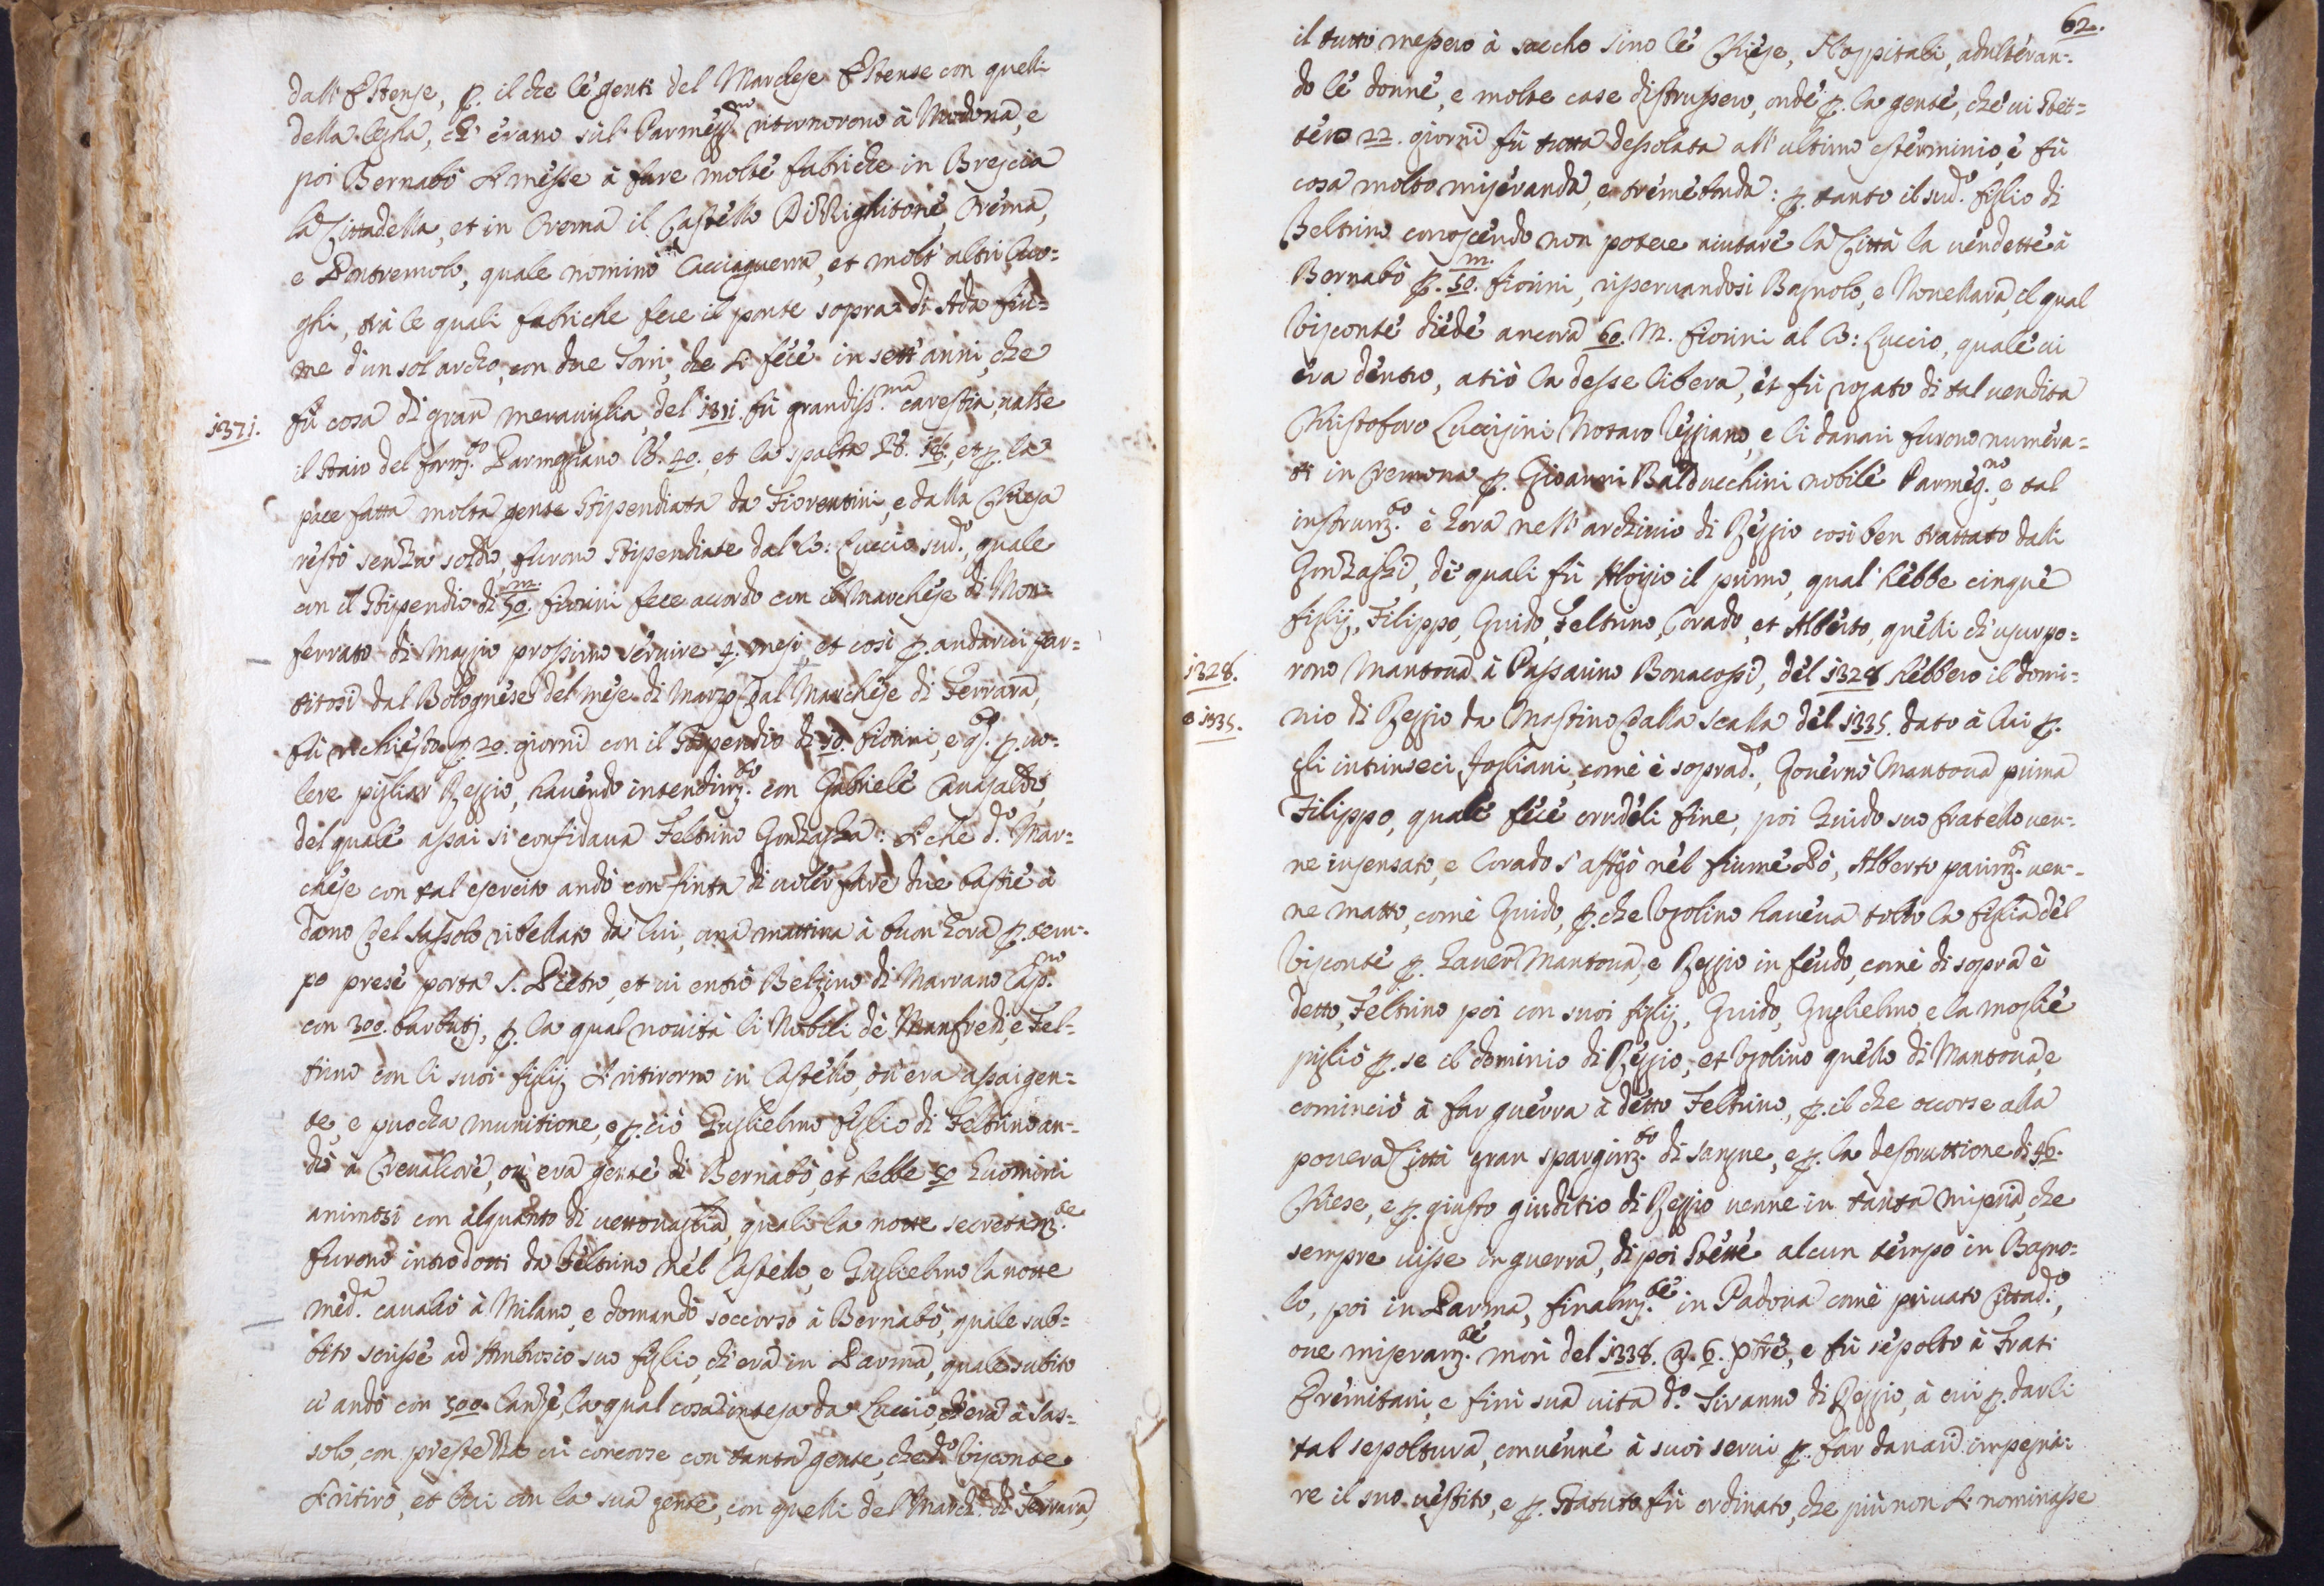 dall'Estense, p. il che le genti del Marchese Estense con quelli
della legha, ch'erano sul Parmegg.no ritornorono à Modona, e
poi Bernabò si messe à fare molte fabriche in Brescia
la Cittadella, et in Crema il Castello Crema,
e Pontremolo, quale nominò Cacciaguerra, et molt'altri luo=
ghi, trà le quali fabriche fece il ponte sopra di Ada fiu=
me d'un sol archo, con due Torri, che si fece in sett'anni, che
1371. fù cosa di gran meraviglia, del 1371. fù grandiss.ma carestia, valse
il staio del form.to Parmeggiano lb. 40., et la spalta et p. la
pace fatta molta gente stipendiata da Fiorentini, e dalla Chiesa
restò senza soldo, furono stipendiate dal Co: Luccio sud.o, quale
con il stipendio di 50.m. fiorini fece accordo con il Marchese di Mon=
ferrato di Maggio prossimo servire 4. mesi, et così p. andarvi par=
titosi dal Bolognese del mese di Marzo dal Marchese di Ferrara,
fù richiesto p. 20. giorni con il stipendio di 10. fiorini, e p. vo=
lere pigliar Reggio, havendo intendim.to con Gabriele Canasaldo,
del quale assai si confidava Feltrino Gonzagha: si che d.o Mar=
chese con tal esercito andò con finta di voler fare due bastie à
dano del Sassolo ribellato da lui, una mattina à buon hora p. tem=
po prese porta S. Pietro, et vi entrò Beltrino di Marrano Cap.no
con 300. barbuti, p. la qual novità li Nobili de Manfredi, e Fel=
trino con li suoi figlij si ritirorno in Castello, ov'era assai gen=
te, e puocha munitione, e p. ciò Guglielmo figlio di Feltrino an=
dò à Crevalcore, ov'era gente di Bernabò, et hebbe 50 huomini
animosi con alquanto di vettovaglia, quale la notte secretam.te
furono introdotti da Feltrino nel Castello, e Guglielmo la notte
med.a cavalcò à Milano, e domandò soccorso à Bernabò, quale sub=
bito scrisse ad Ambrosio suo figlio, ch'era in Parma, quale subito
v'andò con 500. lanze, la qual cosa intesa da Luccio, ch'era à Sas=
solo, con prestezza vi concorse con tanta gente, che d.o Visconte
si ritirò, et lui con la sua gente, con quelli del March.e di Ferrara,
62.
il tutto messero à saccho sino le Chiese, Hospitali, adulteran=
do le donne, e molte case distrussero, onde p. la gente, che vi stet=
tero 22. giorni fù tutta dessolata all'ultimo esterminio, e fù
cosa molto miseranda, e tremetonda: p. tanto il sud.o figlio di
Beltrino conoscendo non potere aiutare la Città la vendette à
Bernabò p. 50.m. fiorini, risservandosi Bagnolo, e Novellara, il qual
Visconte diede ancora 60. M. fiorini al Co: Luccio, quale vi
era dentro, atiò la desse libera, et fù rogato di tal vendita
Christoforo Luccisini Notaro Reggiano, e li danari furono numera=
ti in Cremona p. Giovanni Balducchini nobile Parmeg.no, e tal
instrum.to è hora nell'archivio di Reggio così ben trattato dalli
Gonzaghi, de quali fù Aloisio il primo, qual'hebbe cinque
figlij, Filippo, Guido, Feltrino, Corado, et Alberto, quelli ch'usurpo=
1328. rono Mantova à Passarino Bonacossi, del 1328 hebbero il domi=
e 1335. nio di Reggio da Mastino dalla Scalla del 1335. dato à lui p.
gli intrinseci fogliani, come è soprad.o Governò Mantova prima
Filippo, quale fece crudeli fine, poi Guido suo fratello ven=
ne insensato, e Corado s'affogò nel fiume Pò, Alberto parim.te ven=
ne matto, come Guido, p.che Ugolino haveva tolto la figlia del
Visconte p. haver Mantova, e Reggio in feudo, come di sopra è
detto, Feltrino poi con suoi figlij, Guido, Guglielmo, e la moglie
pigliò p. se il dominio di Reggio, et Ugolino quello di Mantova, e
cominciò à far guerra à detto Feltrino, p. il che occorse alla
povera Città gran spargim.to di sangue, e p. la destruttione di 46.
Chiese, e p. giusto giuditio di Reggio venne in tanta miseria, che
sempre visse in guerra, di poi stette alcun tempo in Bagno=
lo, poi in Parma, finalm.te in Padova come privato Cittad.o,
ove miseram.te morì del 1338. @ 6. Xbre, e fù sepolto à Frati
Eremitani, e finì sua vita d.o Tiranno di Reggio, à cui p. darli
tal sepoltura, convenne à suoi servi p. far danari impegna=
re il suo vestito, e p. statuto fù ordinato, che più non si nominasse